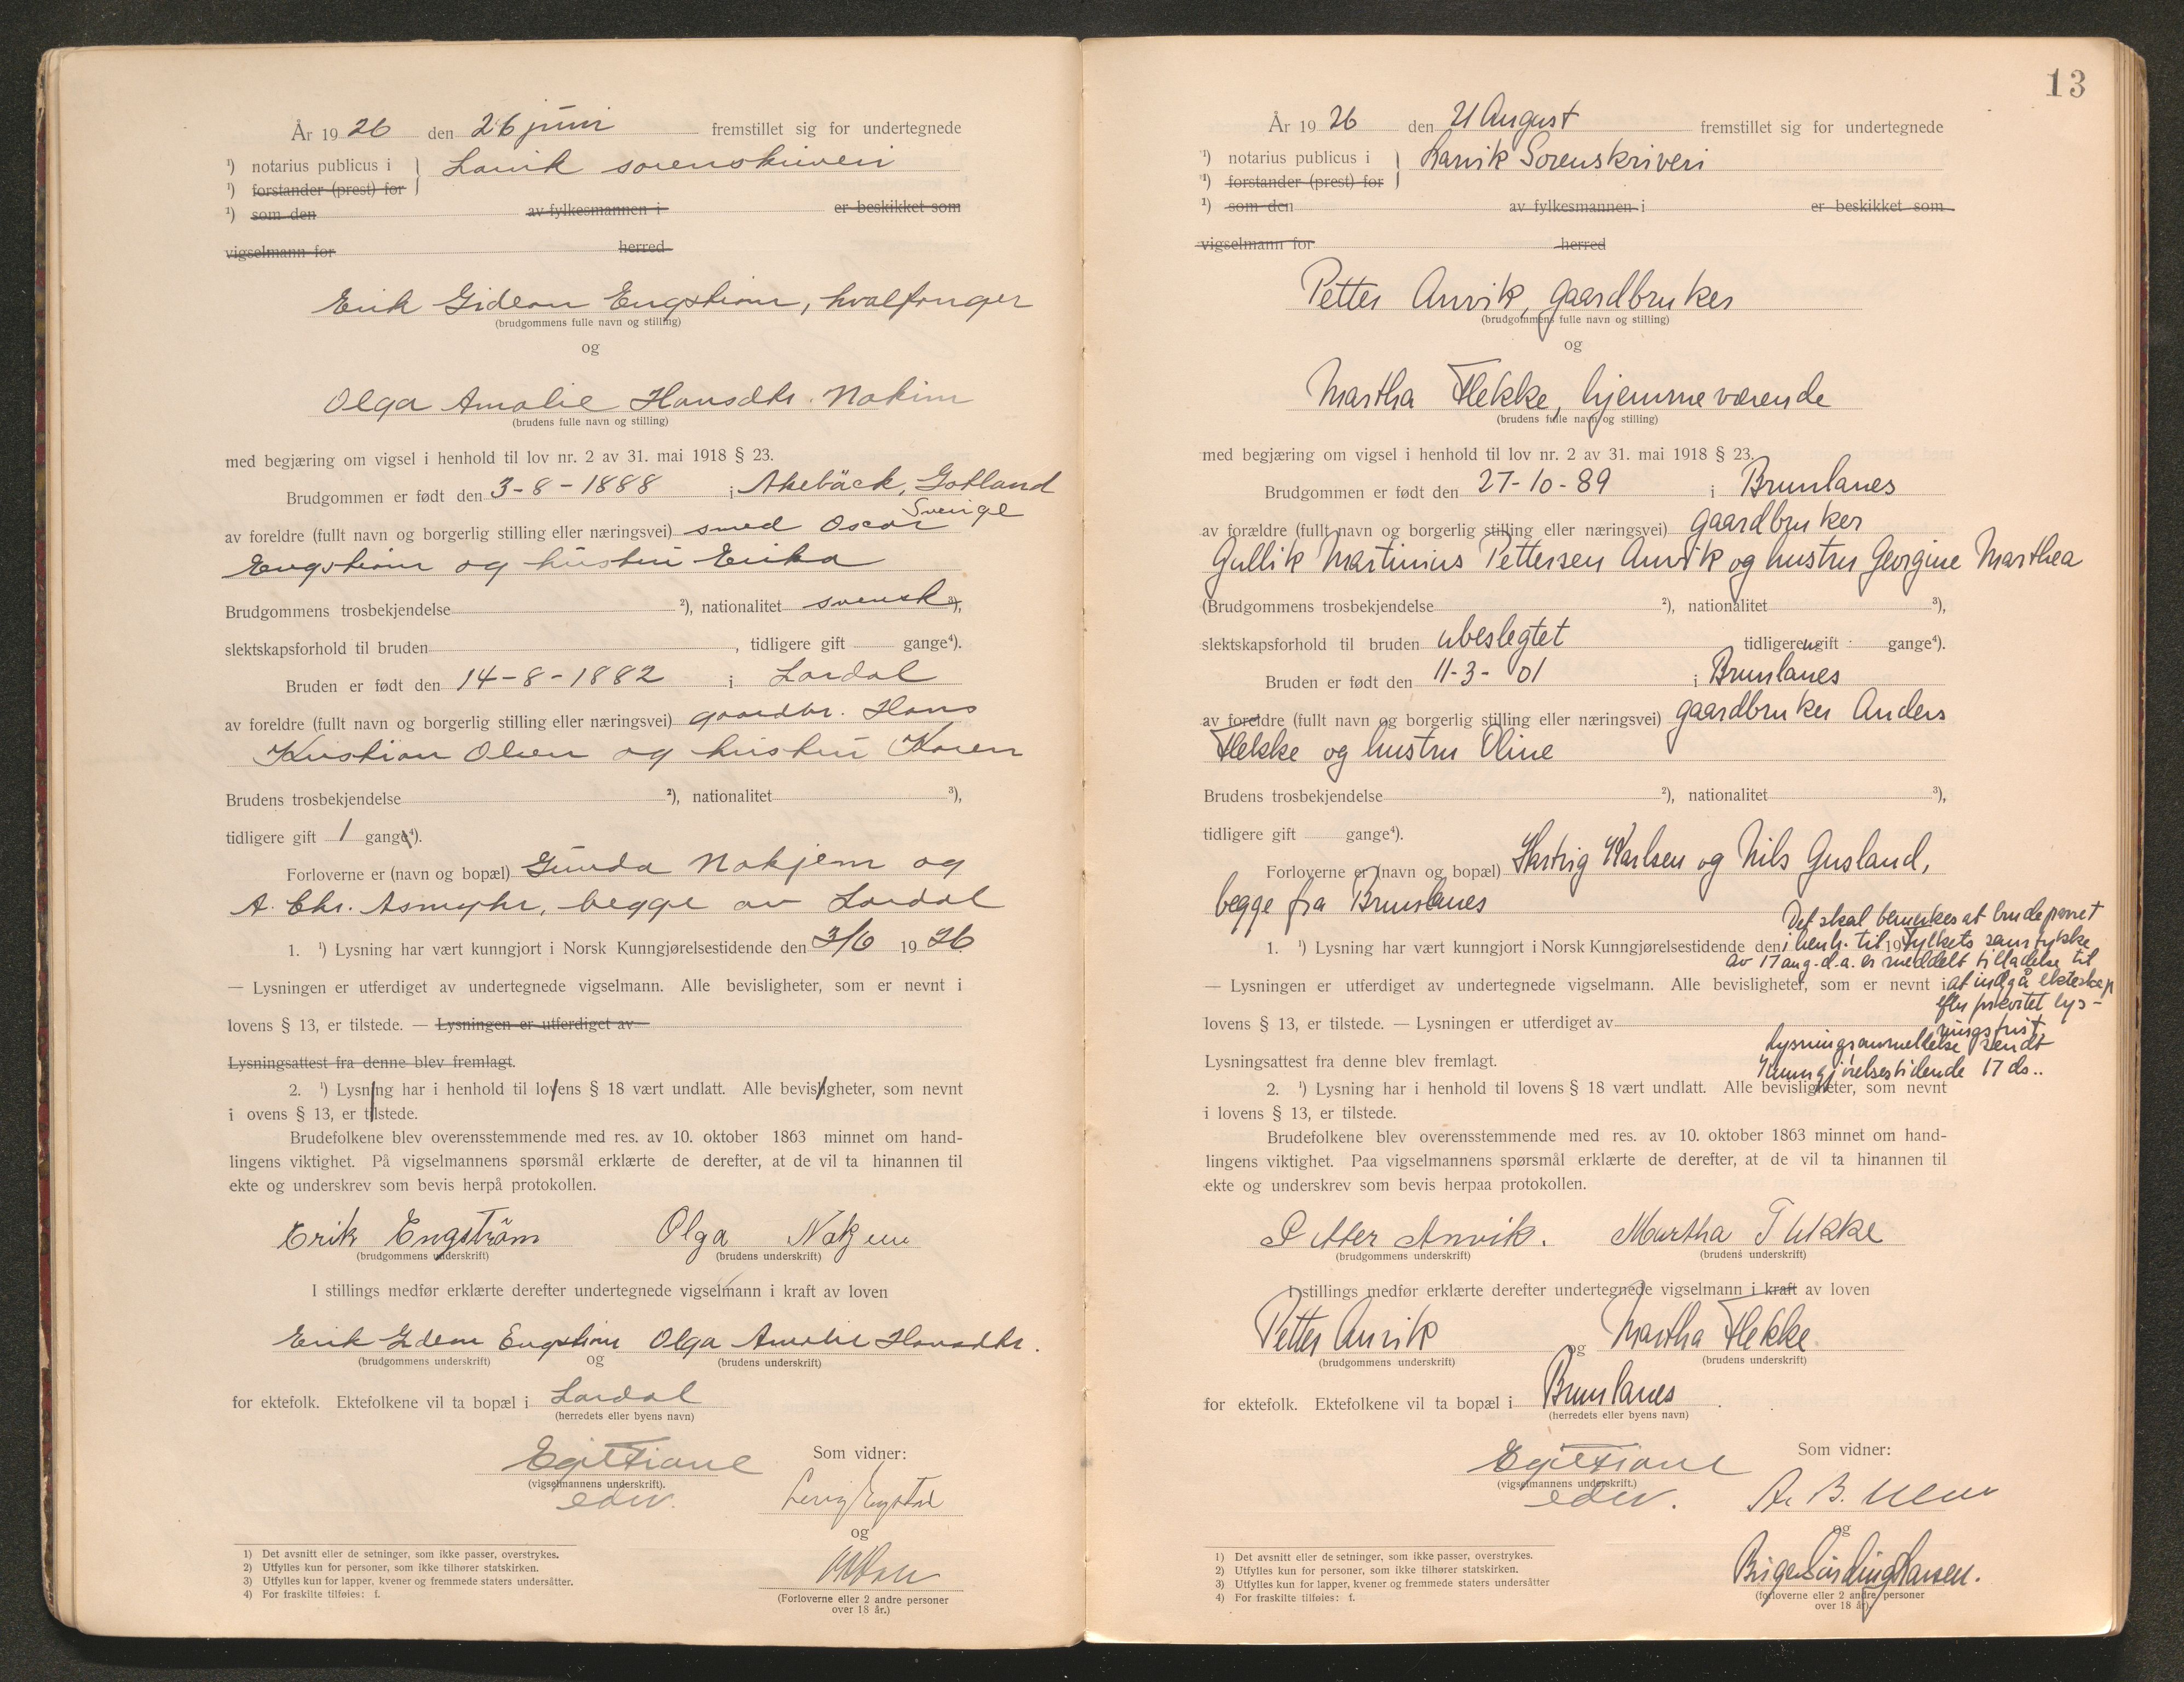 År 1926 den 26 juni fremstillet sig for undertegnede
¹) notarius publicus i } Larvik sorenskriveri
¹) forstander (prest) for
¹) som den av fylkesmannen i er beskikket som
vigselmann for herred
Erik Gideon Engstrøm, hvalfanger
(brudgommens fulle navn og stilling)
og
Olga Amalie Hansdtr. Nakim
(brudens fulle navn og stilling)
med begjæring om vigsel i henhold til lov nr. 2 av 31. mai 1918 § 23.
Brudgommen er født den 3-8-1888 i Akebäck, Gotland
Sverige
av foreldre (fullt navn og borgerlig stilling eller næringsvei) smed Oscar
Engstrøm og hustru Erika
Brudgommens trosbekjendelse ²), nationalitet svensk ³),
slektskapsforhold til bruden , tidligere gift gange⁴).
Bruden er født den 14-8-1882 i Lardal
av foreldre (fullt navn og borgerlig stilling eller næringsvei) gaardbr. Hans
Kristian Olsen og hustru Karen
Brudens trosbekjendelse ²), nationalitet ³),
tidligere gift 1 gange⁴).
Forloverne er (navn og bopæl) Gunda Nakjem og
A. Chr. Asmyhr, begge av Lardal
1. ¹) Lysning har vært kunngjort i Norsk Kunngjørelsestidende den 3/6 1926
— Lysningen er utferdiget av undertegnede vigselmann. Alle bevisligheter, som er nevnt i
lovens § 13, er tilstede. — Lysningen er utferdiget av
Lysningsattest fra denne blev fremlagt.
2. ¹) Lysning har i henhold til lovens § 18 vært undlatt. Alle bevisligheter, som nevnt
i ovens § 13, er tilstede.
Brudefolkene blev overensstemmende med res. av 10. oktober 1863 minnet om hand-
lingens viktighet. På vigselmannens spørsmål erklærte de derefter, at de vil ta hinannen til
ekte og underskrev som bevis herpå protokollen.
Erik Engström Olga Nakjem
(brudgommens underskrift) (brudens underskrift)
I stillings medfør erklærte derefter undertegnede vigselmann i kraft av loven
Erik Gideon Engstrøm Olga Amalie Hansdtr.
(brudgommens underskrift) og (brudens underskrift)
for ektefolk. Ektefolkene vil ta bopæl i Lardal
(herredets eller byens navn)
Som vidner:
(vigselmannens underskrift).
edv.
og
1) Det avsnitt eller de setninger, som ikke passer, overstrykes.
2) Utfylles kun for personer, som ikke tilhører statskirken.
3) Utfylles kun for lapper, kvener og fremmede staters undersåtter.
4) For fraskilte tilføles: f.
(Forloverne eller 2 andre personer
over 18 år.)
13
År 1926 den 21 August fremstillet sig for undertegnede
¹) notarius publicus i } Larvik Sorenskriveri
¹) forstander (prest) for
¹) som den av fylkesmannen i er beskikket som
vigselmann for herred
Petter Anvik, gaardbruker
(brudgommens fulle navn og stilling)
og
Martha Flekke, hjemmeværende
(brudens fulle navn og stilling)
med begjæring om vigsel i henhold til lov nr. 2 av 31. mai 1918 § 23.
Brudgommen er født den 27-10-89 i Brunlanes
av forældre (fullt navn og borgerlig stilling eller næringsvei) gaardbruker
Gullik Martinius Pettersen Anvik og hustru Georgine Marthea
(Brudgommens trosbekjendelse ²), nationalitet ³),
slektskapsforhold til bruden ubeslegtet tidligere ugift gange⁴).
Bruden er født den 11-3-01 i Brunlanes
av foreldre (fullt navn og borgerlig stilling eller næringsvei) gaardbruker Anders
Flekke og hustru Oline
Brudens trosbekjendelse ²), nationalitet ³),
tidligere gift gange⁴).
Forloverne er (navn og bopæl) Hartvig Karlsen og Nils Gusland,
begge fra Brunlanes
Det skal bemerkes at brudeparret
1. ¹) Lysning har vært kunngjort i Norsk Kunngjørelsestidende den 19
i henh. til Fylkets samtykke
av 17 aug. d.a. er meddelt tilladelse til
— Lysningen er utferdiget av undertegnede vigselmann. Alle bevisligheter, som er nevnt i
at indgå ekteskap
efter forkortet lys-
lovens § 13, er tilstede. — Lysningen er utferdiget av
ningsfrist
Lysningsanmeldelse sendt
Lysningsattest fra denne blev fremlagt.
Kunngjørelsestidende 17 ds..
2. ¹) Lysning har i henhold til lovens § 18 vært undlatt. Alle bevisligheter, som nevnt
i lovens § 13, er tilstede.
Brudefolkene blev overensstemmende med res. av 10. oktober 1863 minnet om hand-
lingens viktighet. Paa vigselmannens spørsmål erklærte de derefter, at de vil ta hinannen til
ekte og underskrev som bevis herpaa protokollen.
Petter Anvik. Martha Flekke
(brudgommens underskrift) (brudens underskrift)
I stillings medfør erklærte derefter undertegnede vigselmann i kraft av loven
Petter Anvik og Martha Flekke
(brudgommens underskrift) (brudens underskrift)
for ektefolk. Ektefolkene vil ta bopæl i Brunlanes
(herredets eller byens navn)
Som vidner:
(vigselmannens underskrift.)
edv.
og
1) Det avsnitt eller de setninger, som ikke passer, overstrykes.
2) Utfylles kun for personer, som ikke tilhører statskirken.
3) Utfylles kun for lapper, kvener og fremmede staters undersåtter
4) For fraskilte tilføles: f.
(forloverne eller 2 andre personer
over 18 år)